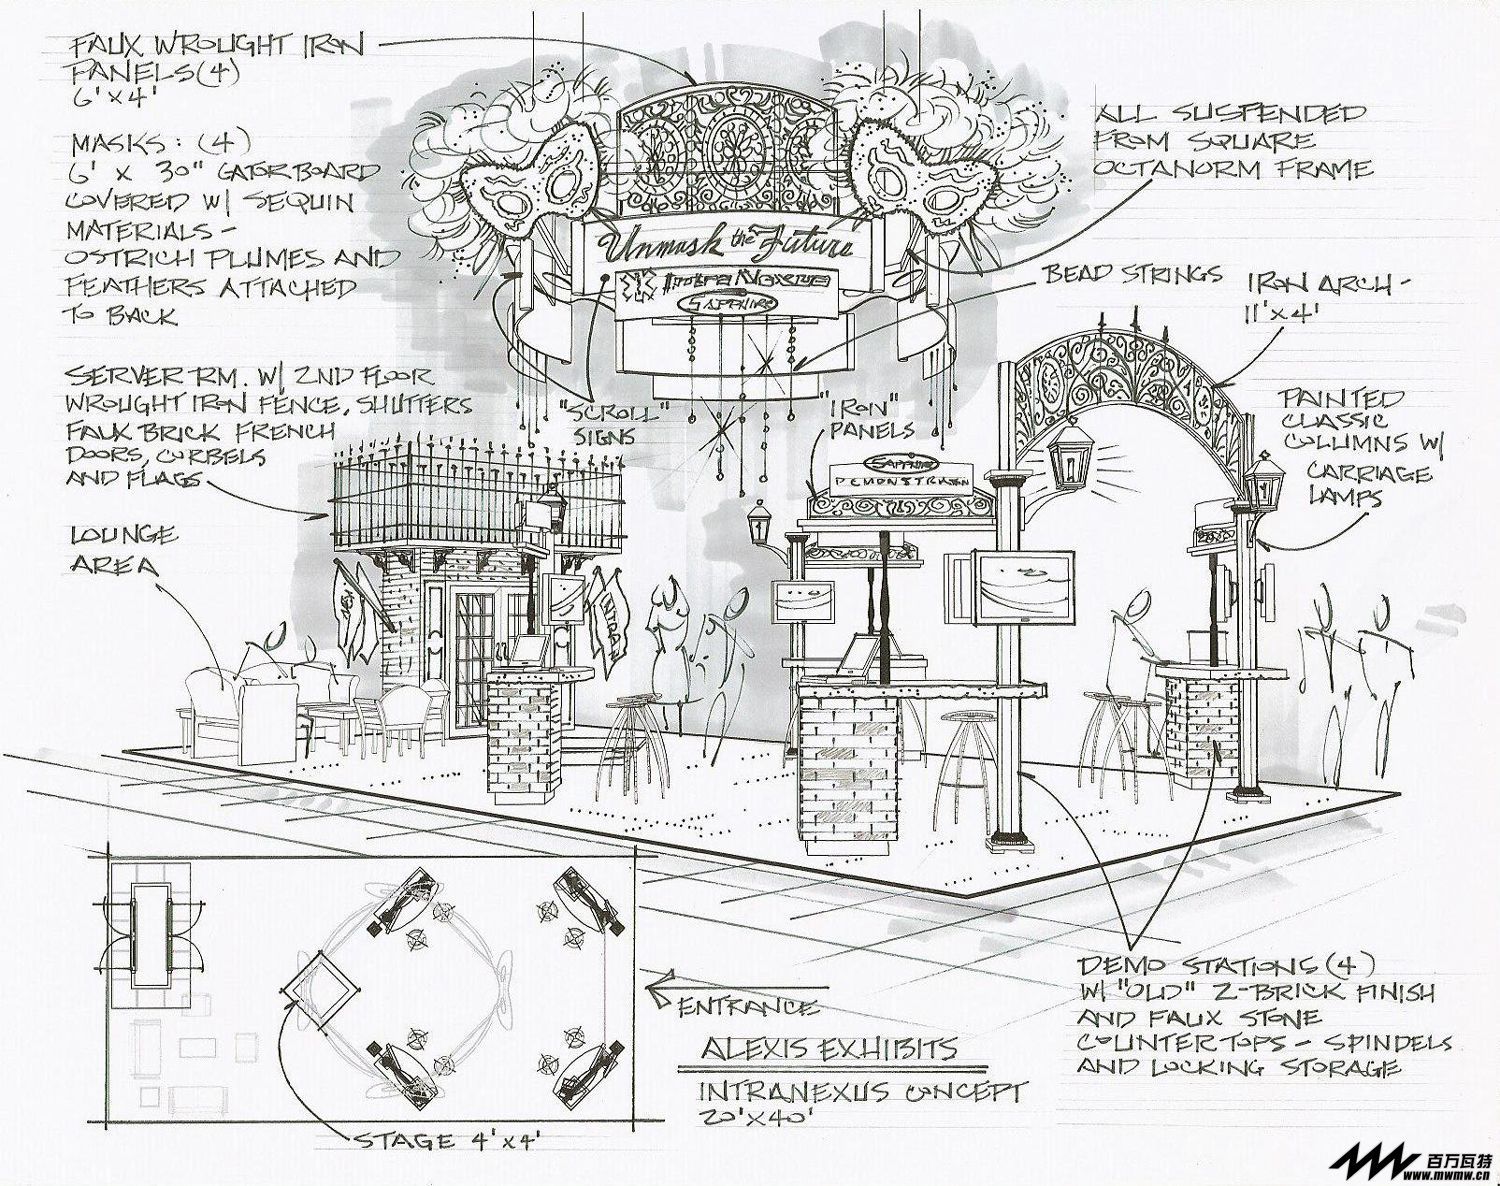 FAUX WROUGHT IRON
PANELS (4)
6' x 4'
MASKS: (4)
6' x 30" GATORBOARD
COVERED W/ SEQUIN
MATERIALS -
OSTRICH PLUMES AND
FEATHERS ATTACHED
TO BACK
SERVER RM. W/ 2ND FLOOR
WROUGHT IRON FENCE, SHUTTERS
FAUX BRICK FRENCH
DOORS, CORBELS
AND FLAGS
LOUNGE
AREA
Unmask the Future
IntraNexus
SAPPHIRE
"SCROLL"
SIGNS
ALL SUSPENDED
FROM SQUARE
OCTANORM FRAME
BEAD STRINGS
IRON ARCH -
11' x 4'
"IRON"
PANELS
PAINTED
CLASSIC
COLUMNS W/
CARRIAGE
LAMPS
SAPPHIRE
DEMONSTRATION
INTRAN
DEMO STATIONS (4)
W/ "OLD" Z-BRICK FINISH
AND FAUX STONE
COUNTERTOPS - SPINDELS
AND LOCKING STORAGE
ENTRANCE
ALEXIS EXHIBITS
INTRANEXUS CONCEPT
20' x 40'
STAGE 4' x 4'
百万瓦特
www.mwmw.cn